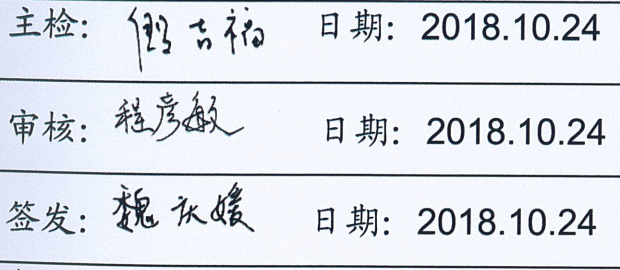 主检: 吉福 日期: 2018.10.24
审核: 程彦敏 日期: 2018.10.24
签发: 魏庆媛 日期: 2018.10.24